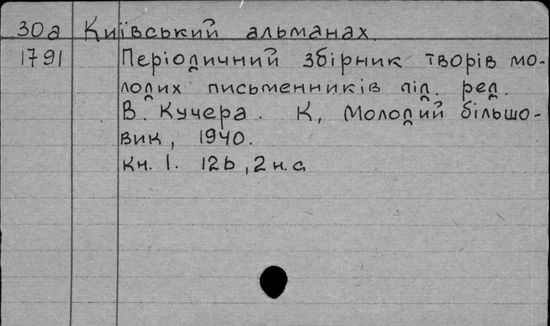 30а Київський альманах.
1791 Періодичний збірник творів мо-
лодих письменників під. ред.
В. Кучера. К, Молодий більшо-
вик, 1940.
кн. 1. 126, 2 н.с